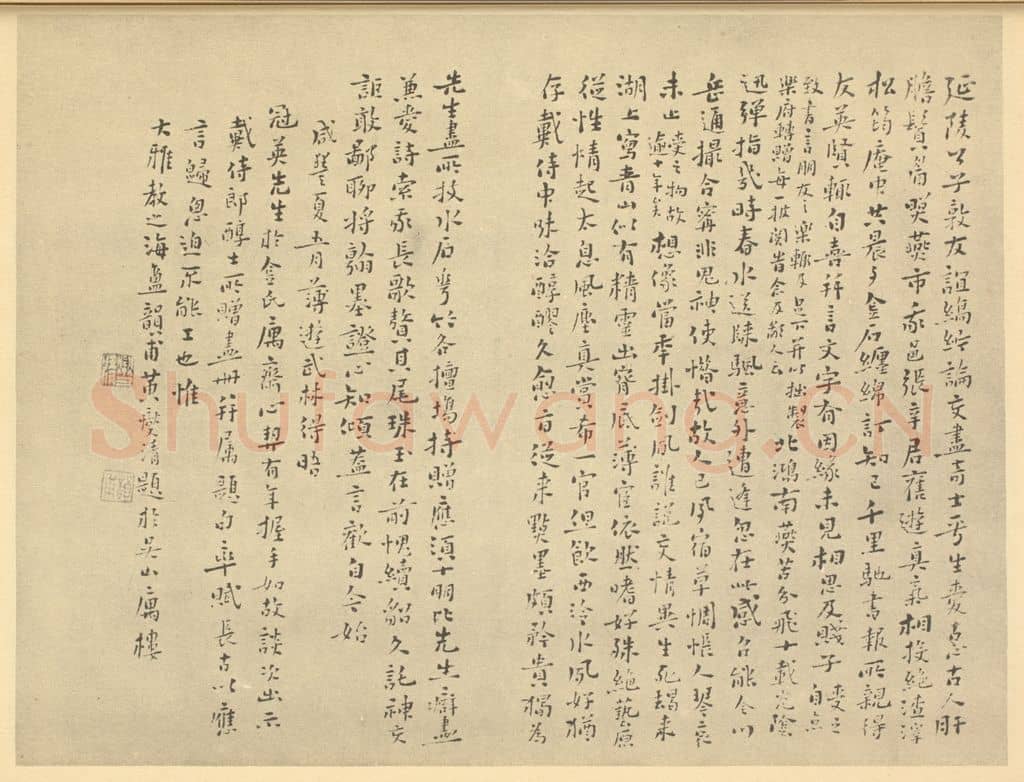 延陵公子敦友誼縞紵論交盡奇士平生愛魚古人肝
膽鬢眉哭燕市我邑張章君舊遊真氣相投絕渣滓
松筠庵中共晨夕金石纏綿訂知己千里馳書報所親得
友英賢輒自喜并言文字有因緣未見相思及賤子
致書言朋友之樂輒及足下并以拙製
樂府轉贈每一披閱皆念及鄙人云
北鴻南燕苦分飛十載光陰
迅彈指我時春水送歸颿意外遭逢忽在此感召能令川
岳通撮合寧非鬼神使惜哉故人已夙宿草惆悵人琴哀
未止
逾十年矣
想像當年掛劍風誰說交情異生死朅來
湖上寫青山似有精靈出窅底薄宦依然嗜好殊絕藝
從性情起太息風塵真賞希一官但飲西泠水夙好猶
存戴侍中味洽醇醪久愈旨從來點墨頗矜貴獨為
先生盡所技水石琴竹各擅塲持贈應須十朋比先生癖畫
兼愛詩索我長歌贅其尾珠玉在前愧續貂久託神交
詎敢鄙聊將翰墨證心知傾蓋言歡自今始
咸豐夏五月薄遊武林得晤
冠英先生於金氏寓齋心契有年握手如故談次出示
戴侍郎醇士所贈畫冊并屬題句率賦長古以應
言歸恖迫不能工也惟
大雅教之海鹽韻甫黃燮清題於吳山寓樓
Shufawang.CN